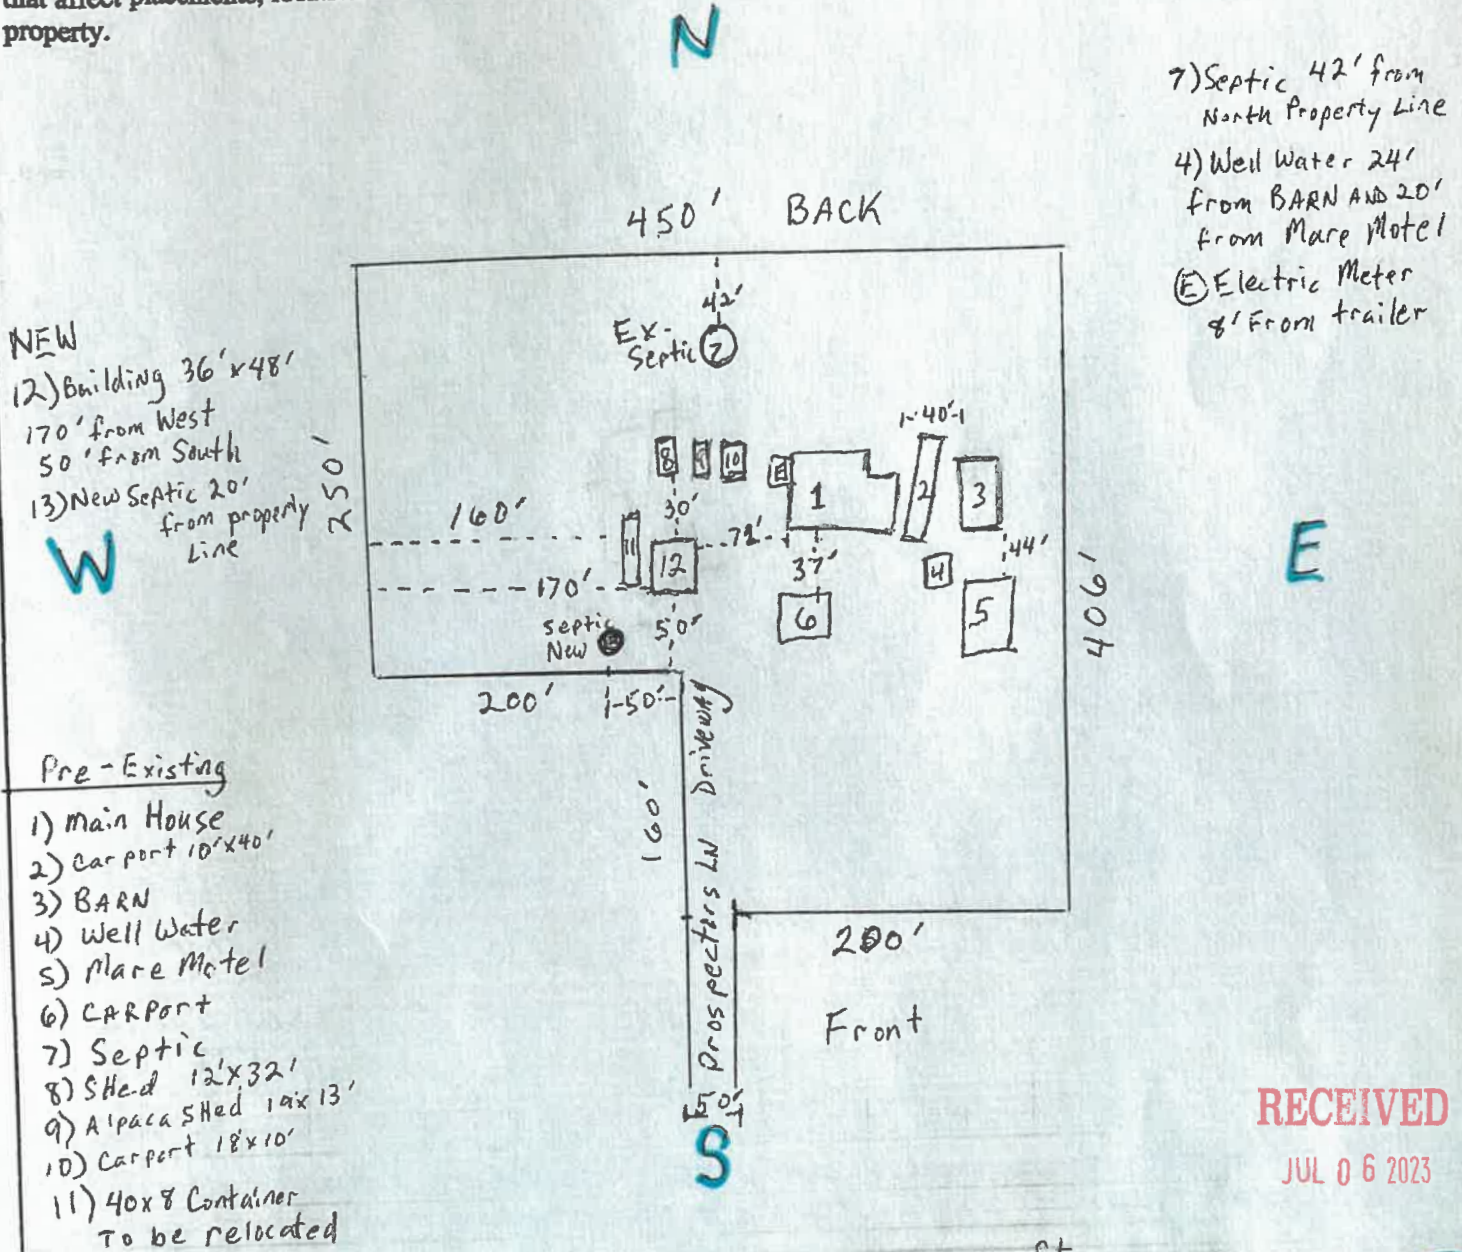 that affect placements,
property.
N
7) Septic 42' from
North Property Line
4) Well Water 24'
from BARN AND 20'
from Mare Motel
(E) Electric Meter
8' From trailer
450' BACK
42'
Ex-
Septic 7
NEW
12) Building 36' x 48'
170' from West
50' from South
13) New Septic 20'
from property
Line
W
250'
8 9 10 E 1 2 3
1-40'-1
30'
160'
11
12
72'
37'
4
44'
5
6
170'
50'
Septic
New 13
E
406'
200'
1-50'-
160'
Prospectors LN Driveway
200'
Front
50'
S
Pre-Existing
1) Main House
2) Carport 10'x40'
3) BARN
4) Well Water
5) Mare Motel
6) CARPORT
7) Septic
8) SHed 12'x32'
9) Alpaca SHed 19x13'
10) Carport 18'x10'
11) 40x8 Container
To be relocated
RECEIVED
JUL 06 2023